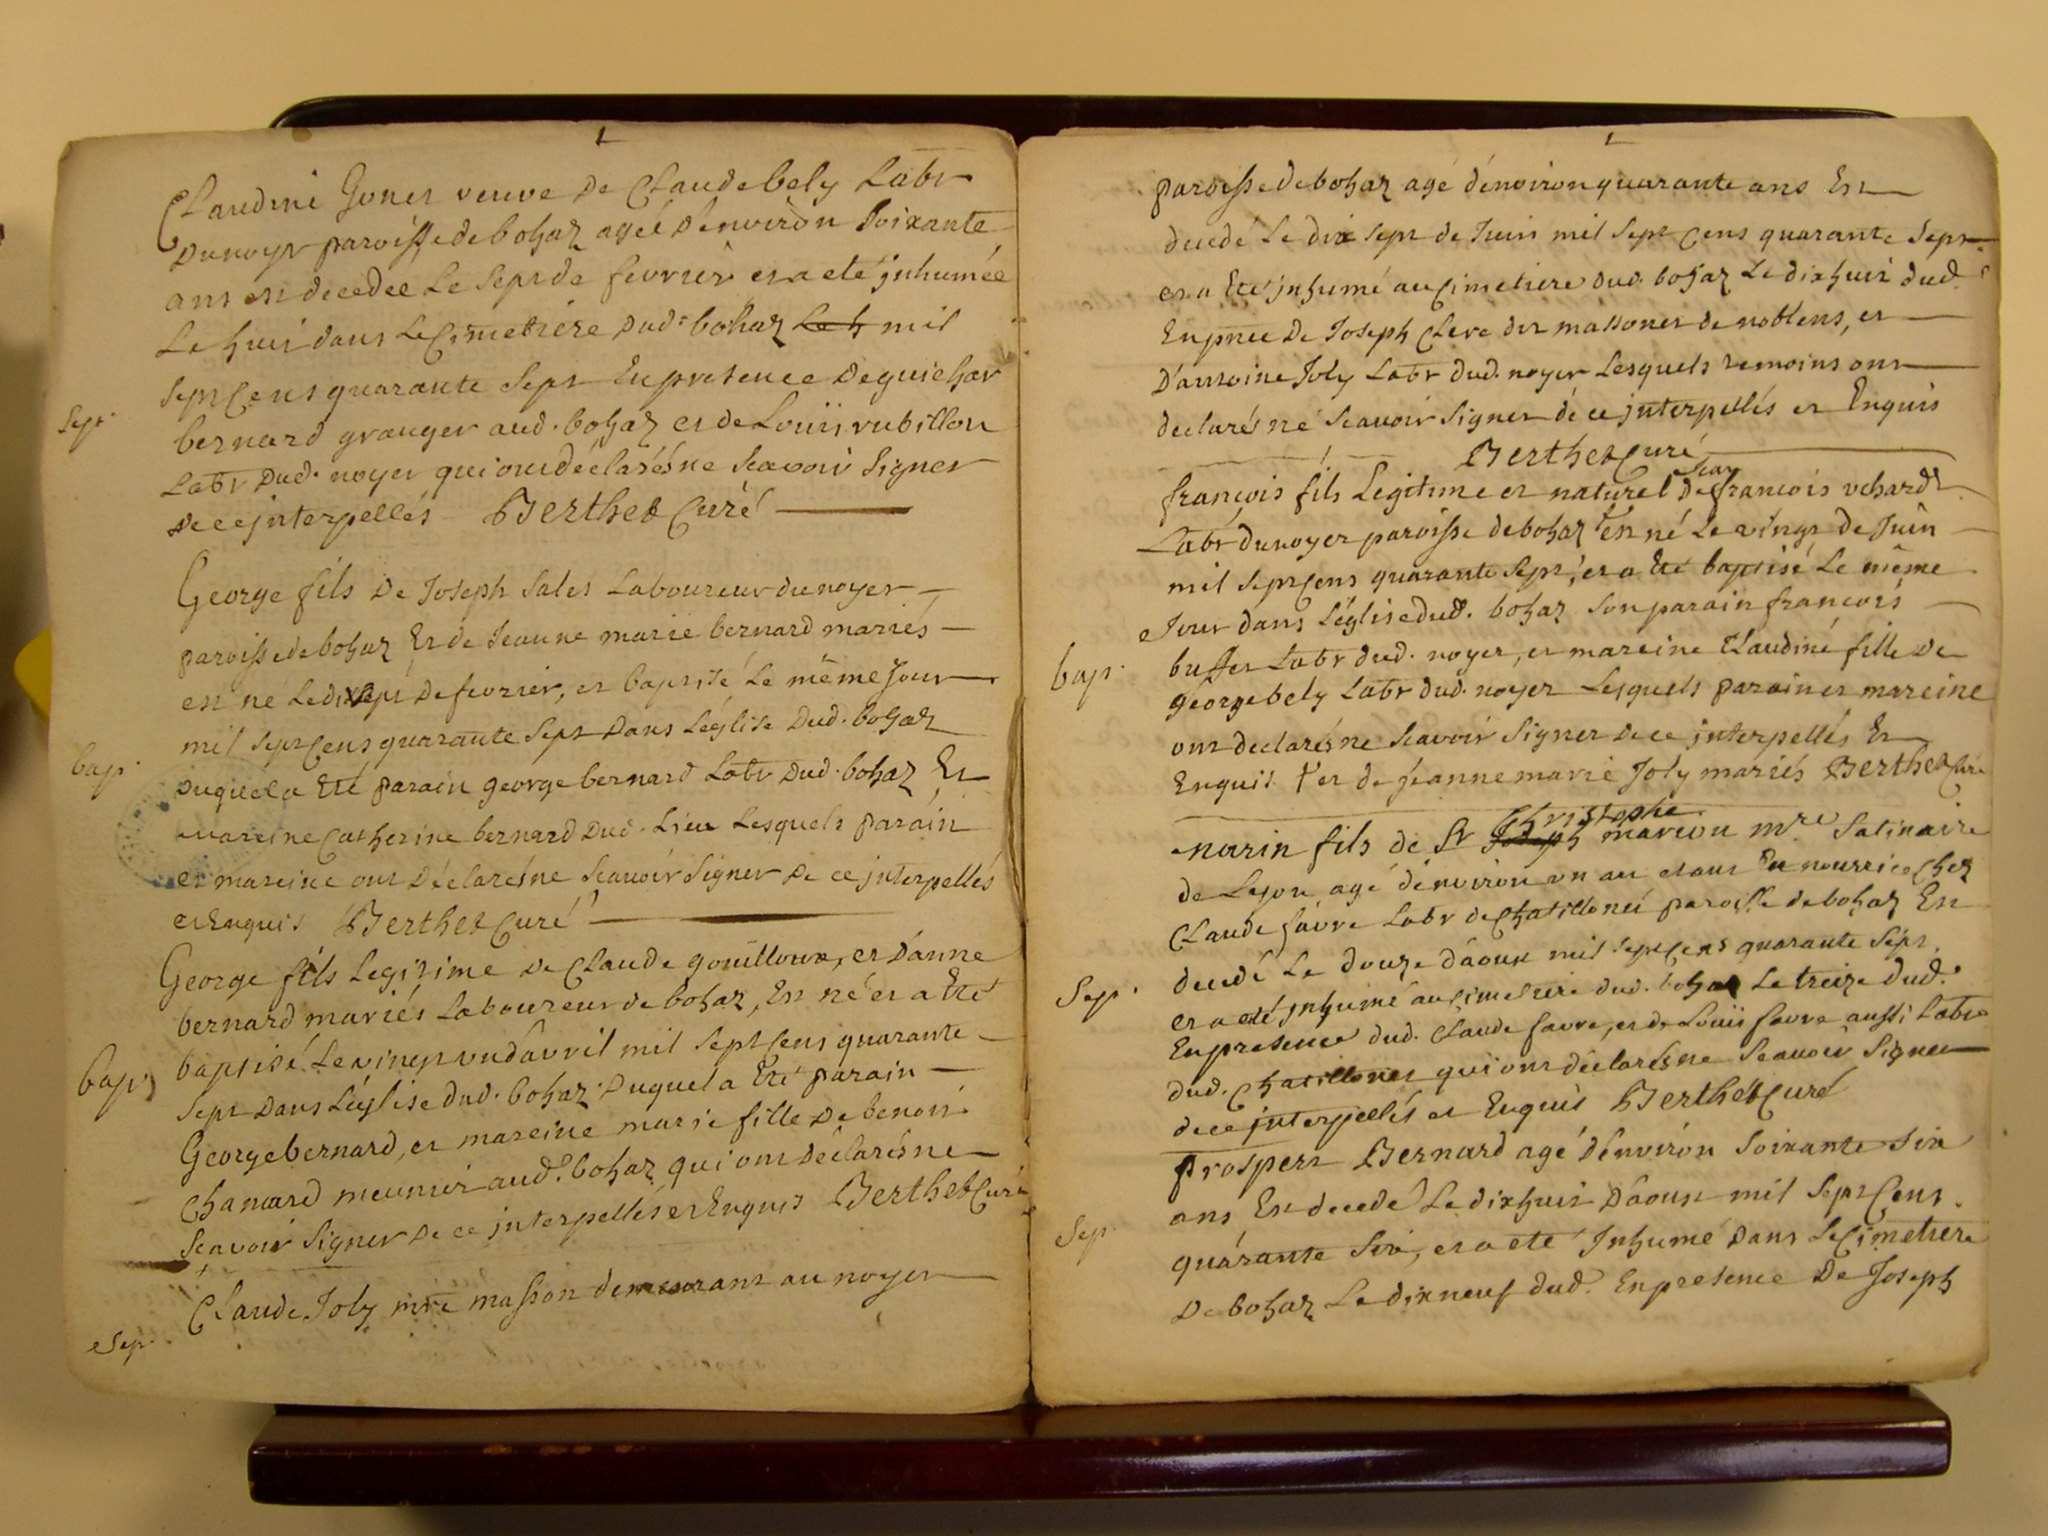 Claudine Gonet veuve de Claude bely Labr
Dunoyr paroisse de bohaz agée d'environ soixante
ans est decedée Le sept de fevrier et a eté inhumée
Le huit dans Le Cimetiere dud. bohaz Le h mil
sept Cens quarante sept En presence de guichar
Sept.
bernard granger aud. bohaz et de Louis rubillon
Labr dud. noyer qui ont déclarés ne scavoir signer
de ce interpellés Berthet Curé
George fils de Joseph Sales Laboureur du noyer
paroisse de bohaz Et de Jeanne marie bernard mariés
est né Le dix sept de fevrier, et baptisé Le même Jour
mil sept Cens quarante sept dans Léglise dud. bohaz
bap.
duquel a Eté parain george bernard Labr dud. bohaz Et
mareine Catherine bernard dud. Lieu Lesquels parain
et mareine ont déclarés ne scavoir signer de ce interpellés
et Enquis Berthet Curé
George fils Legitime de Claude gouilloux, et d'anne
bernard mariés Laboureur de bohaz, Est né et a Eté
baptisé Le vingt un d'avril mil sept Cens quarante
bap.
sept dans Léglise dud. bohaz duquel a Eté parain
George bernard, et mareine marie fille de benoit
Chanard meunier aud. bohaz qui ont déclarés ne
scavoir signer de ce interpellés et Enquis Berthet Curé
Claude Joly mre masson demeurant au noyer
Sep.
paroisse de bohaz agé d'environ quarante ans Est
decedé Le dix sept de Juin mil sept Cens quarante sept
et a Eté inhumé au Cimetiere dud. bohaz Le dix huit dud.
En pnce de Joseph Clere dit massonet de noblens, et
D'antoine Joly Labr dud. noyer Lesquels temoins ont
declarés ne scavoir signer de ce interpellés et Enquis
Berthet Curé
françois fils Legitime et naturel de Jean françois vehard
Labr du noyer paroisse de bohaz † est né Le vingt de Juin
mil sept Cens quarante sept, et a Eté baptisé Le même
Jour dans Léglise dud. bohaz son parain françois
bap.
buffet Labr dud. noyer, et mareine Claudine fille de
george bely Labr dud. noyer Lesquels parain et mareine
ont declarés ne scavoir signer de ce interpellés Et
Enquis † et de jeanne marie Joly mariés Berthet Curé
Christophe
marin fils de Sr Joseph marion mre Satinaire
de Leyon agé d'environ un an etant En nourrice Chez
Claude favre Labr de Chatillonet paroisse de bohaz Est
decedé Le douze d'aoust mil sept Cens quarante sept
Sep.
et a eté inhumé au cimetiere dud. bohaz Le treize dud.
En presence dud. Claude favre, et de Louis favre aussi Labr
dud. Chatillonet qui ont déclarés ne scavoir signer
de ce interpellés et Enquis Berthet Curé
Prospert Bernard agé d'environ soixante six
ans Est decedé Le dix huit d'aoust mil sept Cens
Sep.
quarante six, et a eté Inhumé dans Le Cimetiere
de bohaz Le dix neuf dud. En presence de Joseph